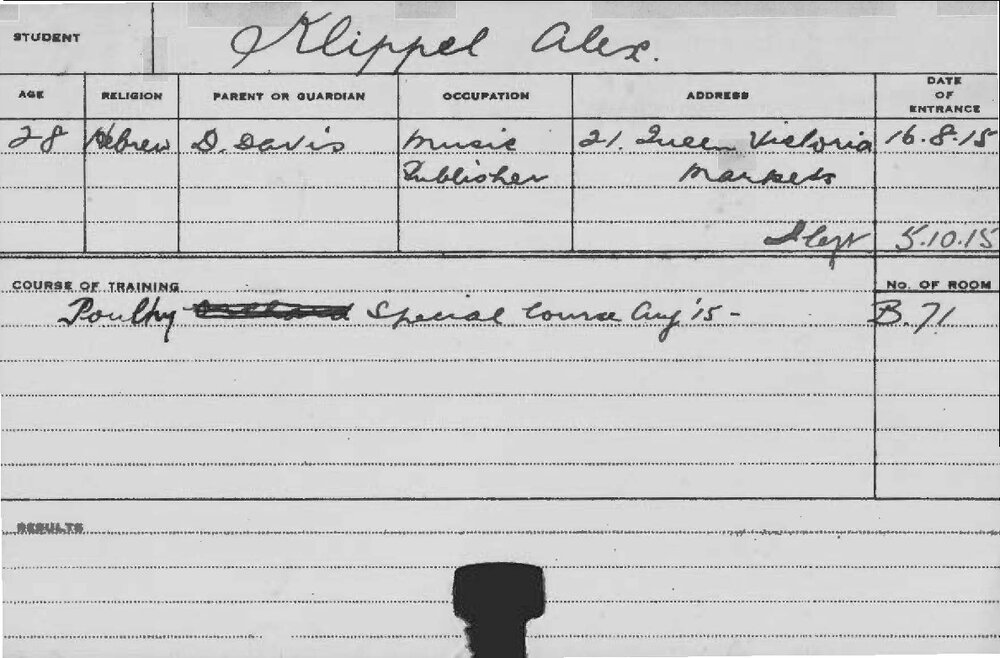 STUDENT Klippel Alex.
AGE RELIGION PARENT OR GUARDIAN OCCUPATION ADDRESS DATE OF ENTRANCE
28 Hebrew D. Davis Music 21. Queen Victoria 16.8.15
Publisher Markets
Slept 5.10.15
COURSE OF TRAINING No. OF ROOM
Poultry Special Course Aug '15 - B.71
RESULTS